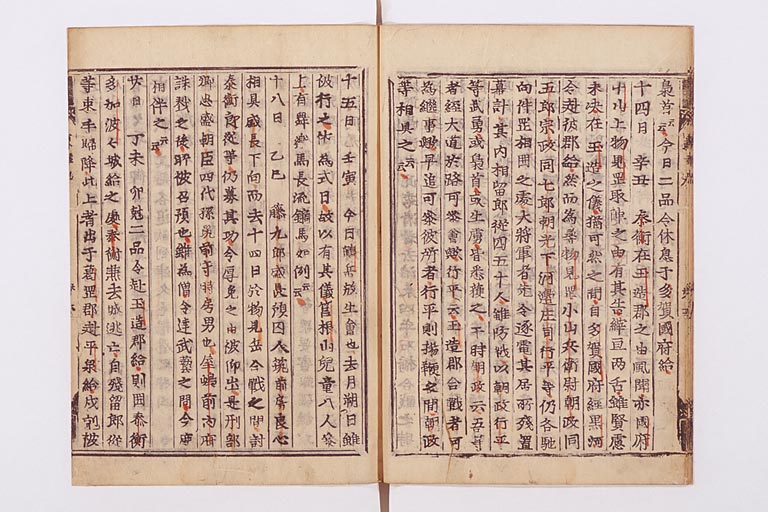 梟首云云今日二品令休息于多賀國府給
十四日 辛丑 泰衡在玉造郡之由風聞亦國府
中山上物見罡取陣之由有其告縡亘兩舌雖賢慮
未決在玉造之儀猶可然之間自多賀國府經黒河
令赴彼郡給然而為尋物見罡小山兵衛尉朝政同
五郎宗政同七郎朝光下河邊庄司行平等仍各馳
向件罡相圍之處大將軍者先令逐電其居所殘置
幕計其内相留郎從四五十人雖防戰以朝政行平
等武勇或梟首或生虜皆悉獲之于時朝政云吾等
者經大道於路可參會歟行平云玉造郡合戰者可
為繼事歟早追可參彼所者行平則揚鞭之間朝政
等相具之云云
十五日 壬寅 今日鶴岳放生會也去月朔日雖
被行之依為式日故以有其儀官根山兒童八人參
上有舞樂馬長流鏑馬如例云云
十八日 乙巳 藤九郎盛長預囚人筑前房良心
相具盛長下向而去十四日於物見岳合戰之間討
泰衡郎從等仍募其功今厚免之由被仰出是刑部
卿忠盛朝臣四代孫筑前守時房男也屋嶋前内府
誅戮之後所被召預也雖為僧令達武藝之間今度
相伴之云云
廿日 丁未 卯尅二品令赴玉造郡給則圍泰衡
多加波々城給之處泰衡兼去城逃亡自殘留郎從
等束手歸降此上者出于葛罡郡赴平泉給戌剋彼